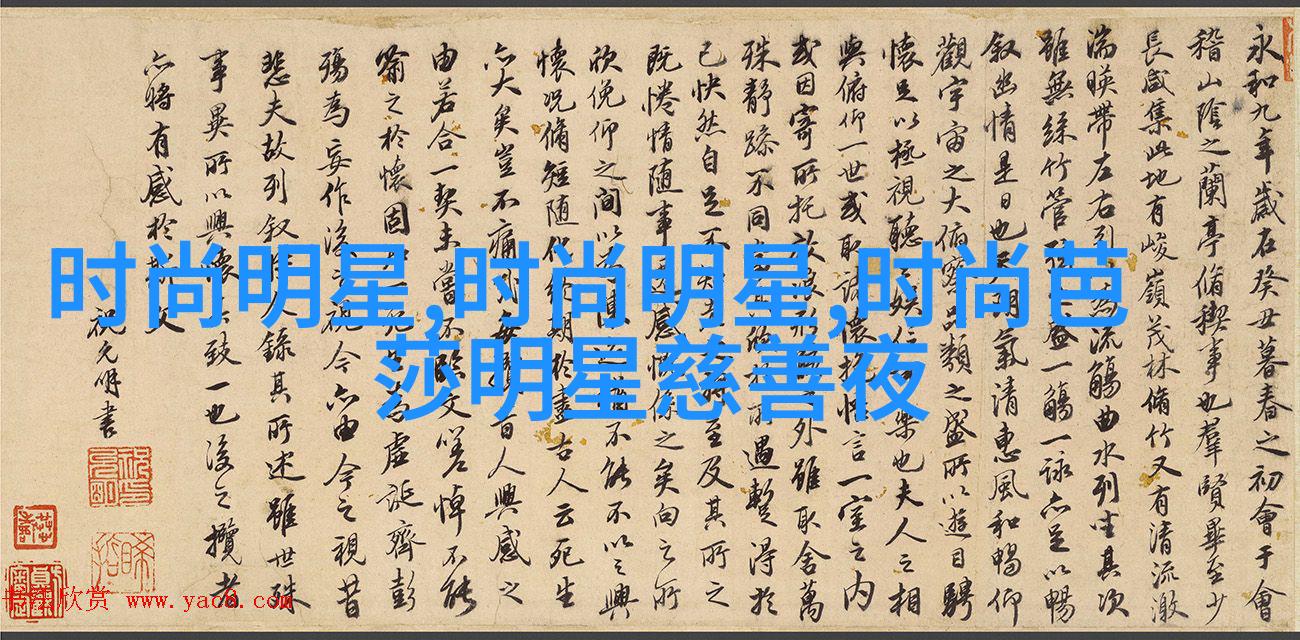 永和九年歲在癸丑暮春之初會于會
稽山陰之蘭亭脩稧事也羣賢畢至少
長咸集此地有峻嶺茂林脩竹又有清流激
湍暎帶左右引為流觴曲水列坐其次
雖無絲竹管弦盛一觴一詠亦足以暢
叙幽情是日也天朗氣清惠風和暢仰
觀宇宙之大俯察品類之盛所以遊目騁
懷足以極視聽娛信樂也夫人之相
與俯仰一世或取諸懷抱悟言一室之內
或因寄所托放浪形外雖取舍萬
殊静躁不同所遇暫得於
己快然自足不知老至及其所之
既惓情随事遷感慨係之矣向之所
欣俛仰之間以陳迹不能不以之興
懷况脩短随化終期於盡古人云死生
亦大矣豈不痛哉每昔人興感之
由若合一契未嘗不臨文嗟悼不能
喻之於懷固死生為虛誕齊彭
殤為妄作後之視今亦由今之視昔
悲夫故列叙人錄其所述雖世殊
事異所以興懷致一也後之攬者
亦將有感於斯文
祝允明書
时尚明星,时尚明星,时尚芭
莎明星慈善夜
书法欣赏 www.yac8.com